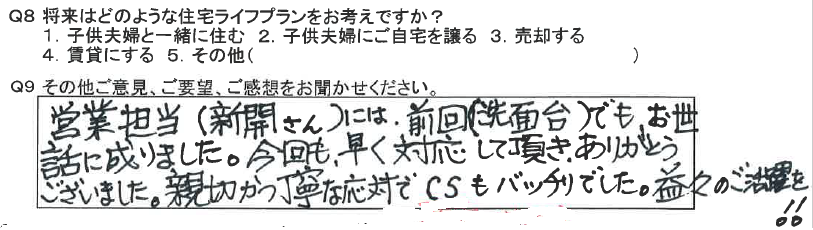 Q8 将来はどのような住宅ライフプランをお考えですか？
1. 子供夫婦と一緒に住む 2. 子供夫婦にご自宅を譲る 3. 売却する
4. 賃貸にする 5. その他( )
Q9 その他ご意見、ご要望、ご感想をお聞かせください。
営業担当(新開さん)には、前回(洗面台)でもお世
話に成りました。今回も、早く対応して頂き、ありがとう
ございました。親切かつ丁寧な応対でCSもバッチリでした。益々のご活躍を!!